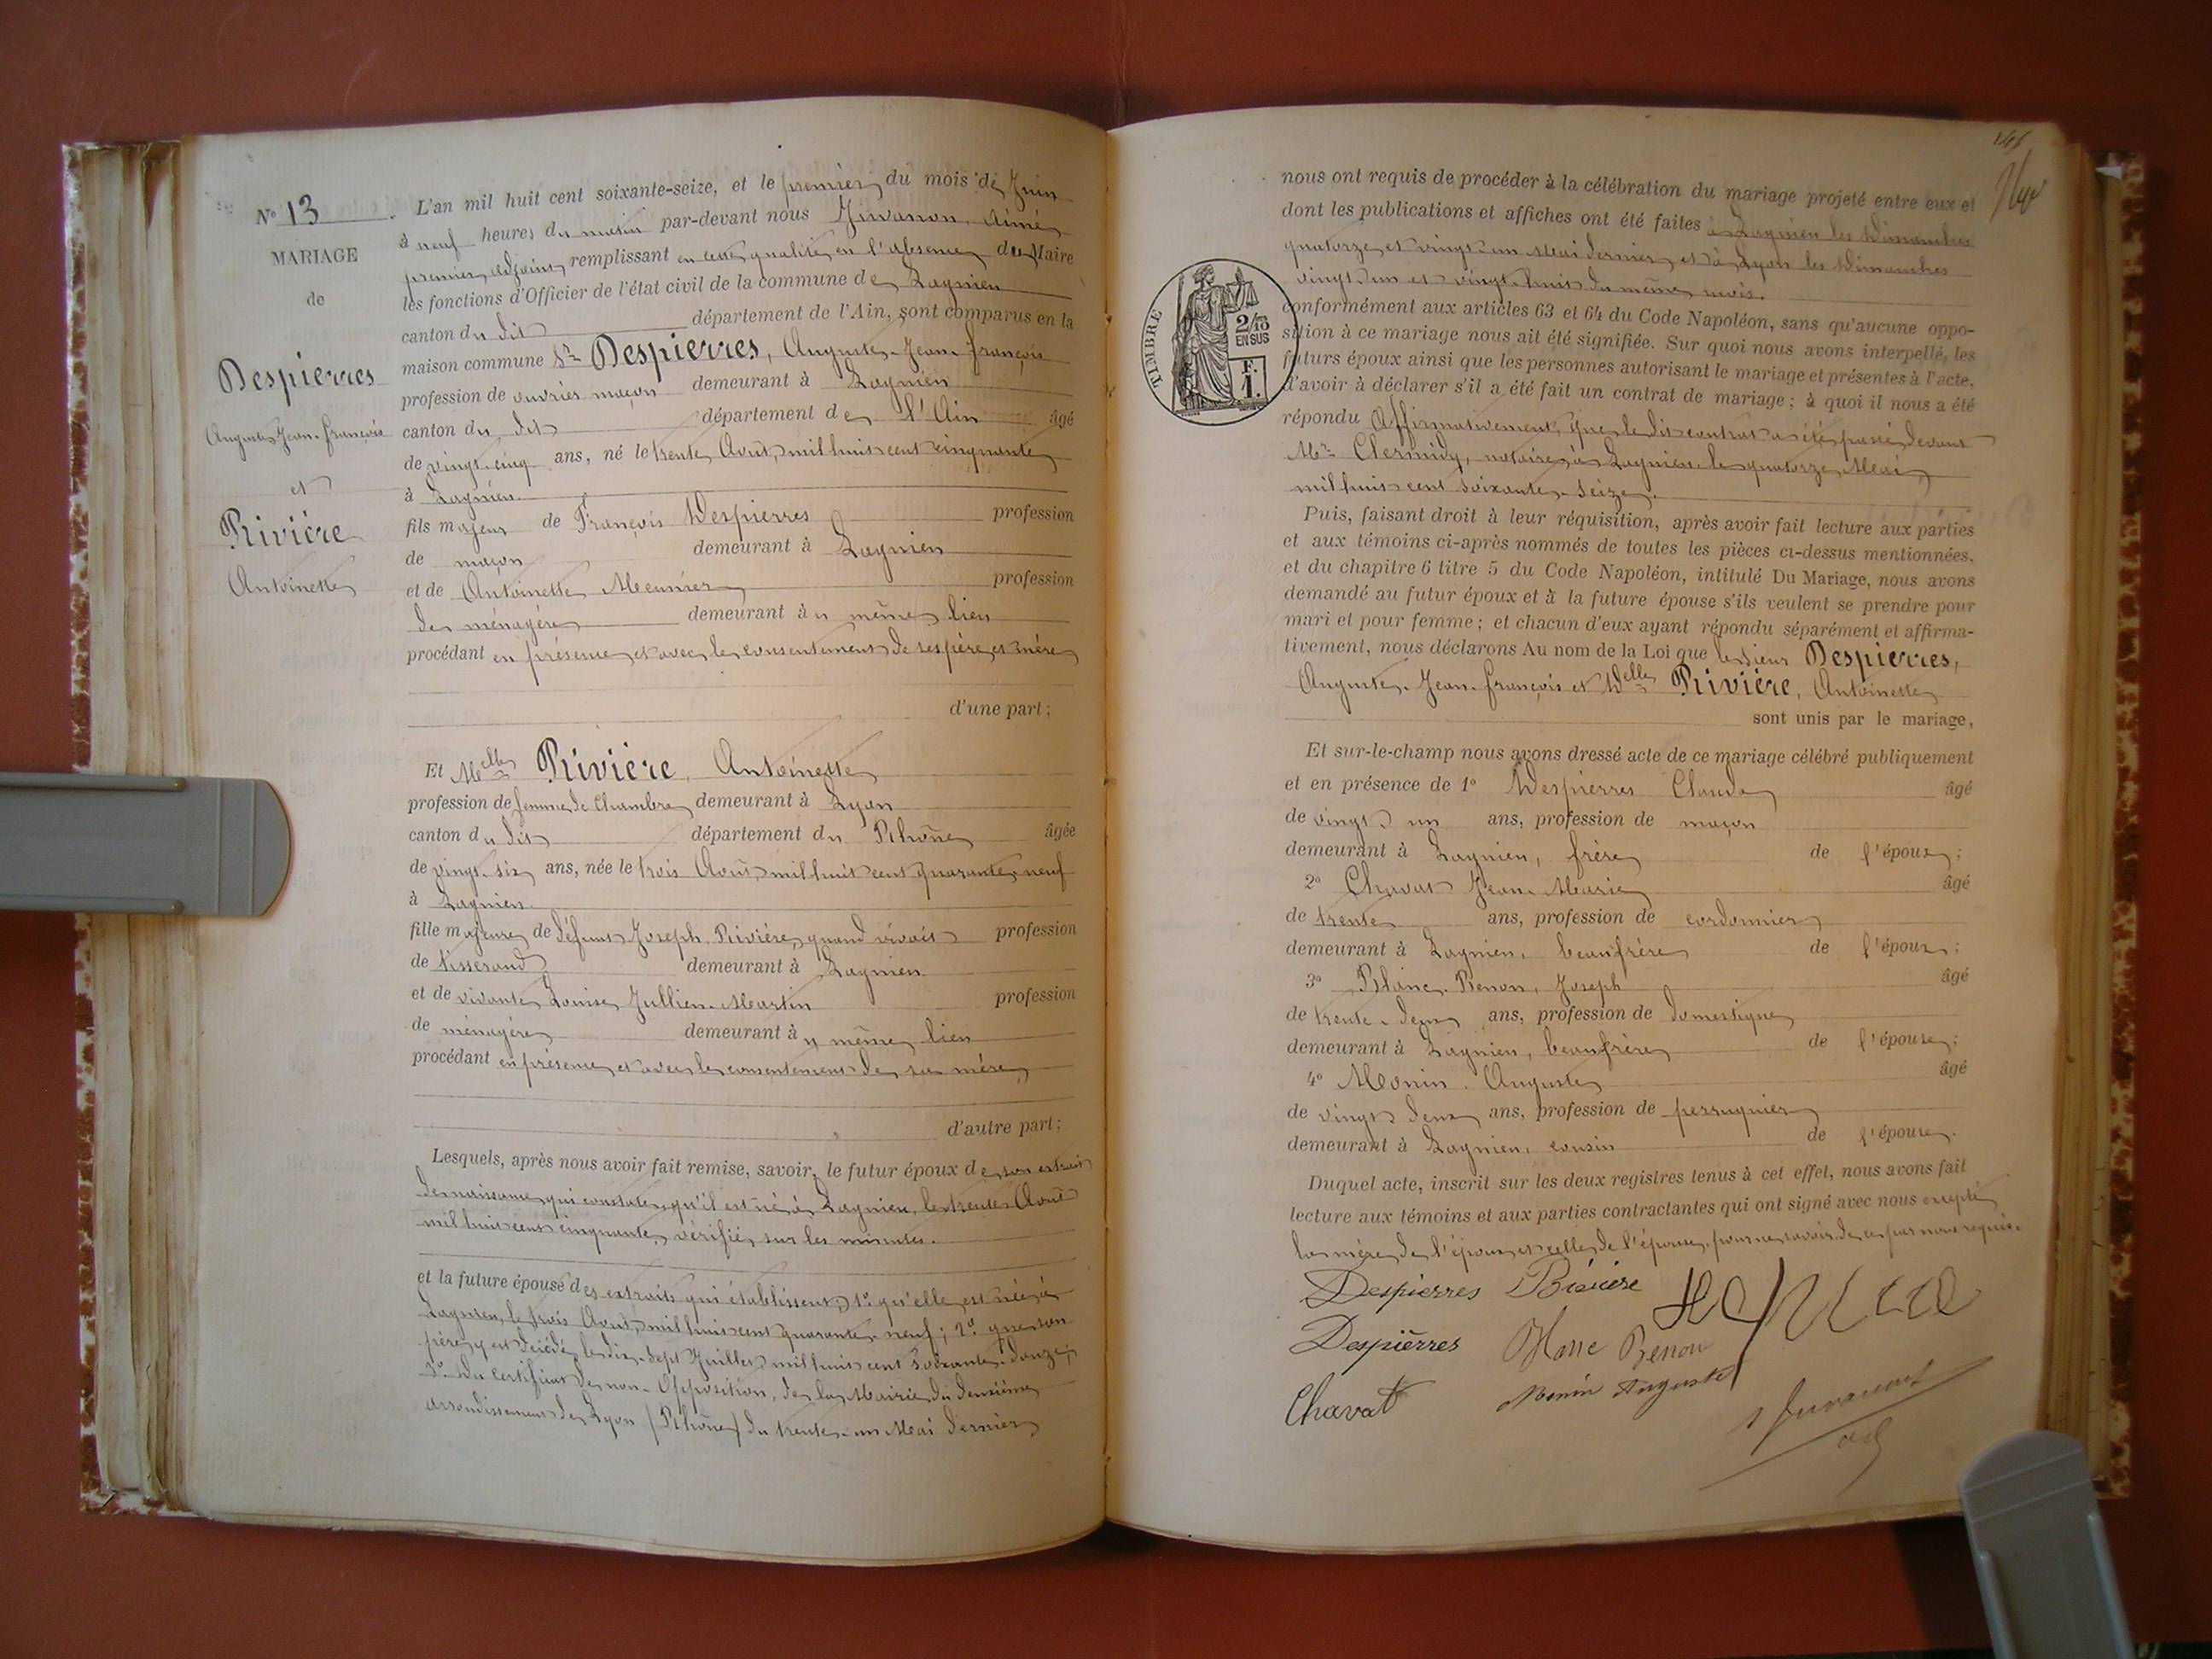 N° 13
MARIAGE
de
Despierres
Auguste Jean-françois
et
Rivière
Antoinette
L'an mil huit cent soixante-seize, et le premier du mois de Juin
à neuf heures du matin par-devant nous Aimé
premier adjoint remplissant en cette qualité en l'absence du Maire
les fonctions d'Officier de l'état civil de la commune de Lagnieu
canton du dit département de l'Ain, sont comparus en la
maison commune Sr Despierres, Auguste-Jean-françois
profession de ouvrier maçon demeurant à Lagnieu
canton du dit département de l'Ain âgé
de vingt-cinq ans, né le trente Août mil huit cent cinquante
à Lagnieu
fils majeur de François Despierres profession
de maçon demeurant à Lagnieu
et de Antoinette Meunier profession
de ménagère demeurant au même lieu
procédant en présence et avec le consentement de ses père et mère
d'une part;
Et Melle Rivière, Antoinette
profession de femme de Chambre demeurant à Lyon
canton du dit département du Rhône âgée
de vingt-six ans, née le trois Août mil huit cent quarante-neuf
à Lagnieu
fille majeure de défunt Joseph Rivière, quand vivait profession
de tisserand demeurant à Lagnieu
et de vivante Louise Jullien-Martin profession
de ménagère demeurant au même lieu
procédant en présence et avec le consentement de sa mère,
d'autre part;
Lesquels, après nous avoir fait remise, savoir, le futur époux de son extrait
de naissance qui constate qu'il est né à Lagnieu, le trente Août
mil huit cent cinquante, vérifié sur les minutes.
et la future épouse des extraits qui établissent, 1° qu'elle est née à
Lagnieu, le trois Août mil huit cent quarante-neuf; 2° que son
père y est décédé le dix-sept Juillet mil huit cent soixante-douze;
3° du certificat de non-Opposition, de la Mairie du deuxième
arrondissement de Lyon (Rhône) du trente-un Mai dernier
nous ont requis de procéder à la célébration du mariage projeté entre eux et
dont les publications et affiches ont été faites à Lagnieu les Dimanches
quatorze et vingt-un Mai dernier, et à Lyon les Dimanches
vingt-un et vingt-huit du même mois.
TIMBRE
2/10
EN SUS
F.
1.
conformément aux articles 63 et 64 du Code Napoléon, sans qu'aucune oppo-
sition à ce mariage nous ait été signifiée. Sur quoi nous avons interpellé, les
futurs époux ainsi que les personnes autorisant le mariage et présentes à l'acte,
d'avoir à déclarer s'il a été fait un contrat de mariage; à quoi il nous a été
répondu Affirmativement, que le dit contrat a été passé devant
Me notaire à Lagnieu le quatorze Mai
mil huit cent soixante-seize.
Puis, faisant droit à leur réquisition, après avoir fait lecture aux parties
et aux témoins ci-après nommés de toutes les pièces ci-dessus mentionnées,
et du chapitre 6 titre 5 du Code Napoléon, intitulé Du Mariage, nous avons
demandé au futur époux et à la future épouse s'ils veulent se prendre pour
mari et pour femme; et chacun d'eux ayant répondu séparément et affirma-
tivement, nous déclarons Au nom de la Loi que le sieur Despierres,
Auguste-Jean-françois et Delle Rivière, Antoinette
sont unis par le mariage,
Et sur-le-champ nous avons dressé acte de ce mariage célébré publiquement
et en présence de 1° Despierres Claude âgé
de vingt un ans, profession de maçon
demeurant à Lagnieu, frère de l'époux;
2° Chavat Jean-Marie âgé
de trente ans, profession de cordonnier
demeurant à Lagnieu, beaufrère de l'époux;
3° Blanc-Renon, Joseph âgé
de trente-deux ans, profession de domestique
demeurant à Lagnieu, beaufrère de l'épouse;
4° Monin Auguste âgé
de vingt deux ans, profession de perruquier
demeurant à Lagnieu, cousin de l'épouse.
Duquel acte, inscrit sur les deux registres tenus à cet effet, nous avons fait
lecture aux témoins et aux parties contractantes qui ont signé avec nous excepté
la mère de l'époux et celle de l'épouse, pour ne savoir de ce par nous requis.
Despierres Rivière
Despierres
Chavat Monin Auguste